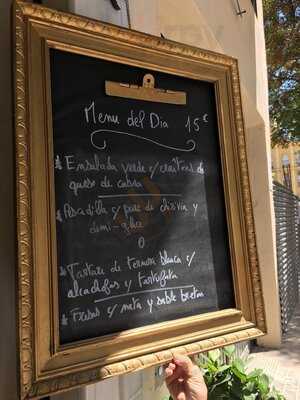 Menu del Día 15€
* Ensalada verde c/ crontins de
queso de cabra
* Asadilla c/ pure de chirivia y
demi-glace
O
* Tartare de ternera blanca c/
alcachofas y tartufata
* Fresas c/ nata y sable breton